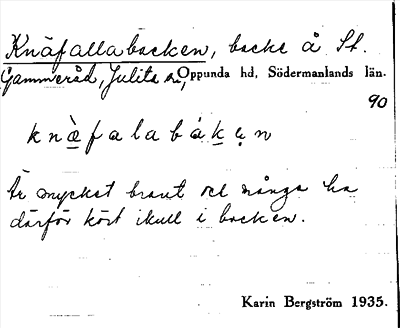 Knäfallabacken, backe å St.
Gammeråd, Julita sn, Oppunda hd, Södermanlands län.
90
knæ̀falabákẹn
Är mycket brant och många ha
därför kört ikull i backen.
Karin Bergström 1935.